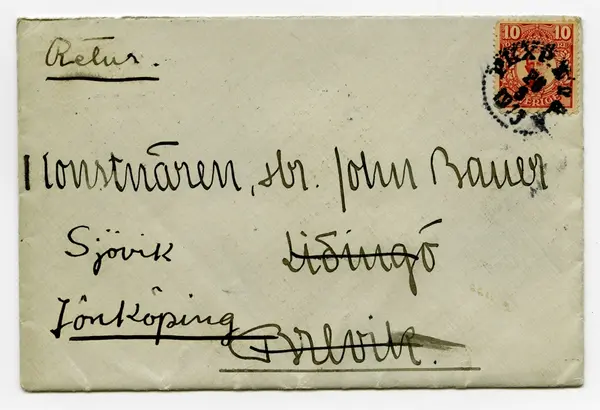 Retur.
10 10
SVERIGE
1913
Konstnären, hr. John Bauer
Sjövik Lidingö
Jönköping Brevik.